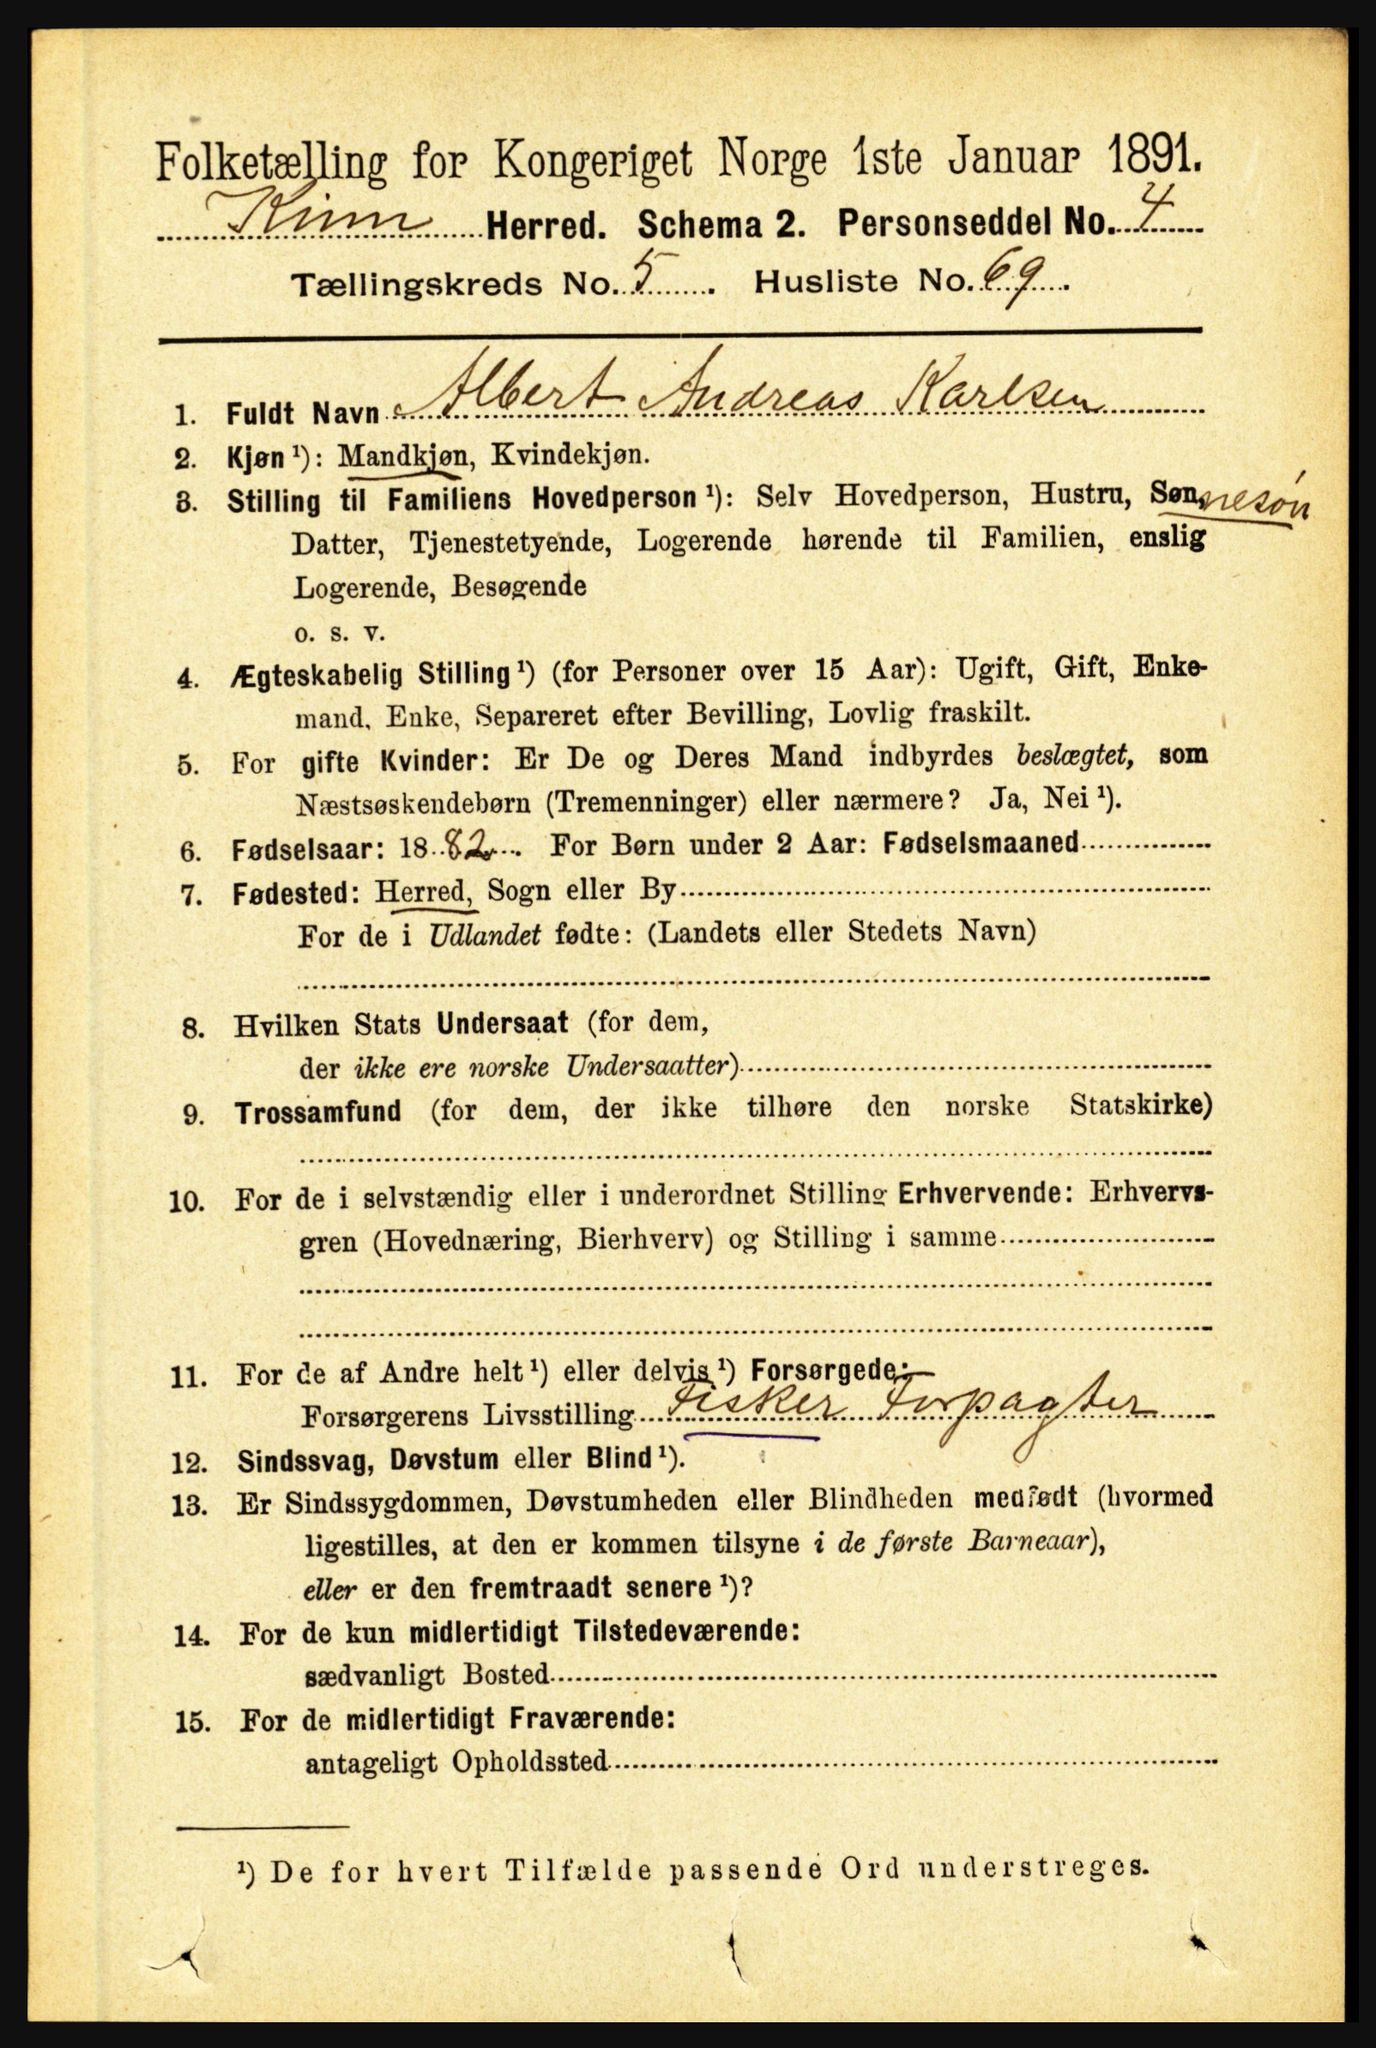 Folketælling for Kongeriget Norge 1ste Januar 1891.
Kinn Herred. Schema 2. Personseddel No. 4
Tællingskreds No. 5. Husliste No. 69.
1. Fuldt Navn Albert Andreas Karlsen
2. Kjøn¹): Mandkjøn, Kvindekjøn.
3. Stilling til Familiens Hovedperson¹): Selv Hovedperson, Hustru, Søn, nesøn
Datter, Tjenestetyende, Logerende hørende til Familien, enslig
Logerende, Besøgende
o. s. v.
4. Ægteskabelig Stilling¹) (for Personer over 15 Aar): Ugift, Gift, Enke-
mand, Enke, Separeret efter Bevilling, Lovlig fraskilt.
5. For gifte Kvinder: Er De og Deres Mand indbyrdes beslægtet, som
Næstsøskendebørn (Tremenninger) eller nærmere? Ja, Nei¹).
6. Fødselsaar: 1882. For Børn under 2 Aar: Fødselsmaaned
7. Fødested: Herred, Sogn eller By
For de i Udlandet fødte: (Landets eller Stedets Navn)
8. Hvilken Stats Undersaat (for dem,
der ikke ere norske Undersaatter)
9. Trossamfund (for dem, der ikke tilhøre den norske Statskirke)
10. For de i selvstændig eller i underordnet Stilling Erhvervende: Erhvervs-
gren (Hovednæring, Bierhverv) og Stilling i samme
11. For de af Andre helt¹) eller delvis¹) Forsørgede:
Forsørgerens Livsstilling Fisker Forpagter
12. Sindssvag, Døvstum eller Blind¹).
13. Er Sindssygdommen, Døvstumheden eller Blindheden medfødt (hvormed
ligestilles, at den er kommen tilsyne i de første Barneaar),
eller er den fremtraadt senere¹)?
14. For de kun midlertidigt Tilstedeværende:
sædvanligt Bosted
15. For de midlertidigt Fraværende:
antageligt Opholdssted
¹) De for hvert Tilfælde passende Ord understreges.